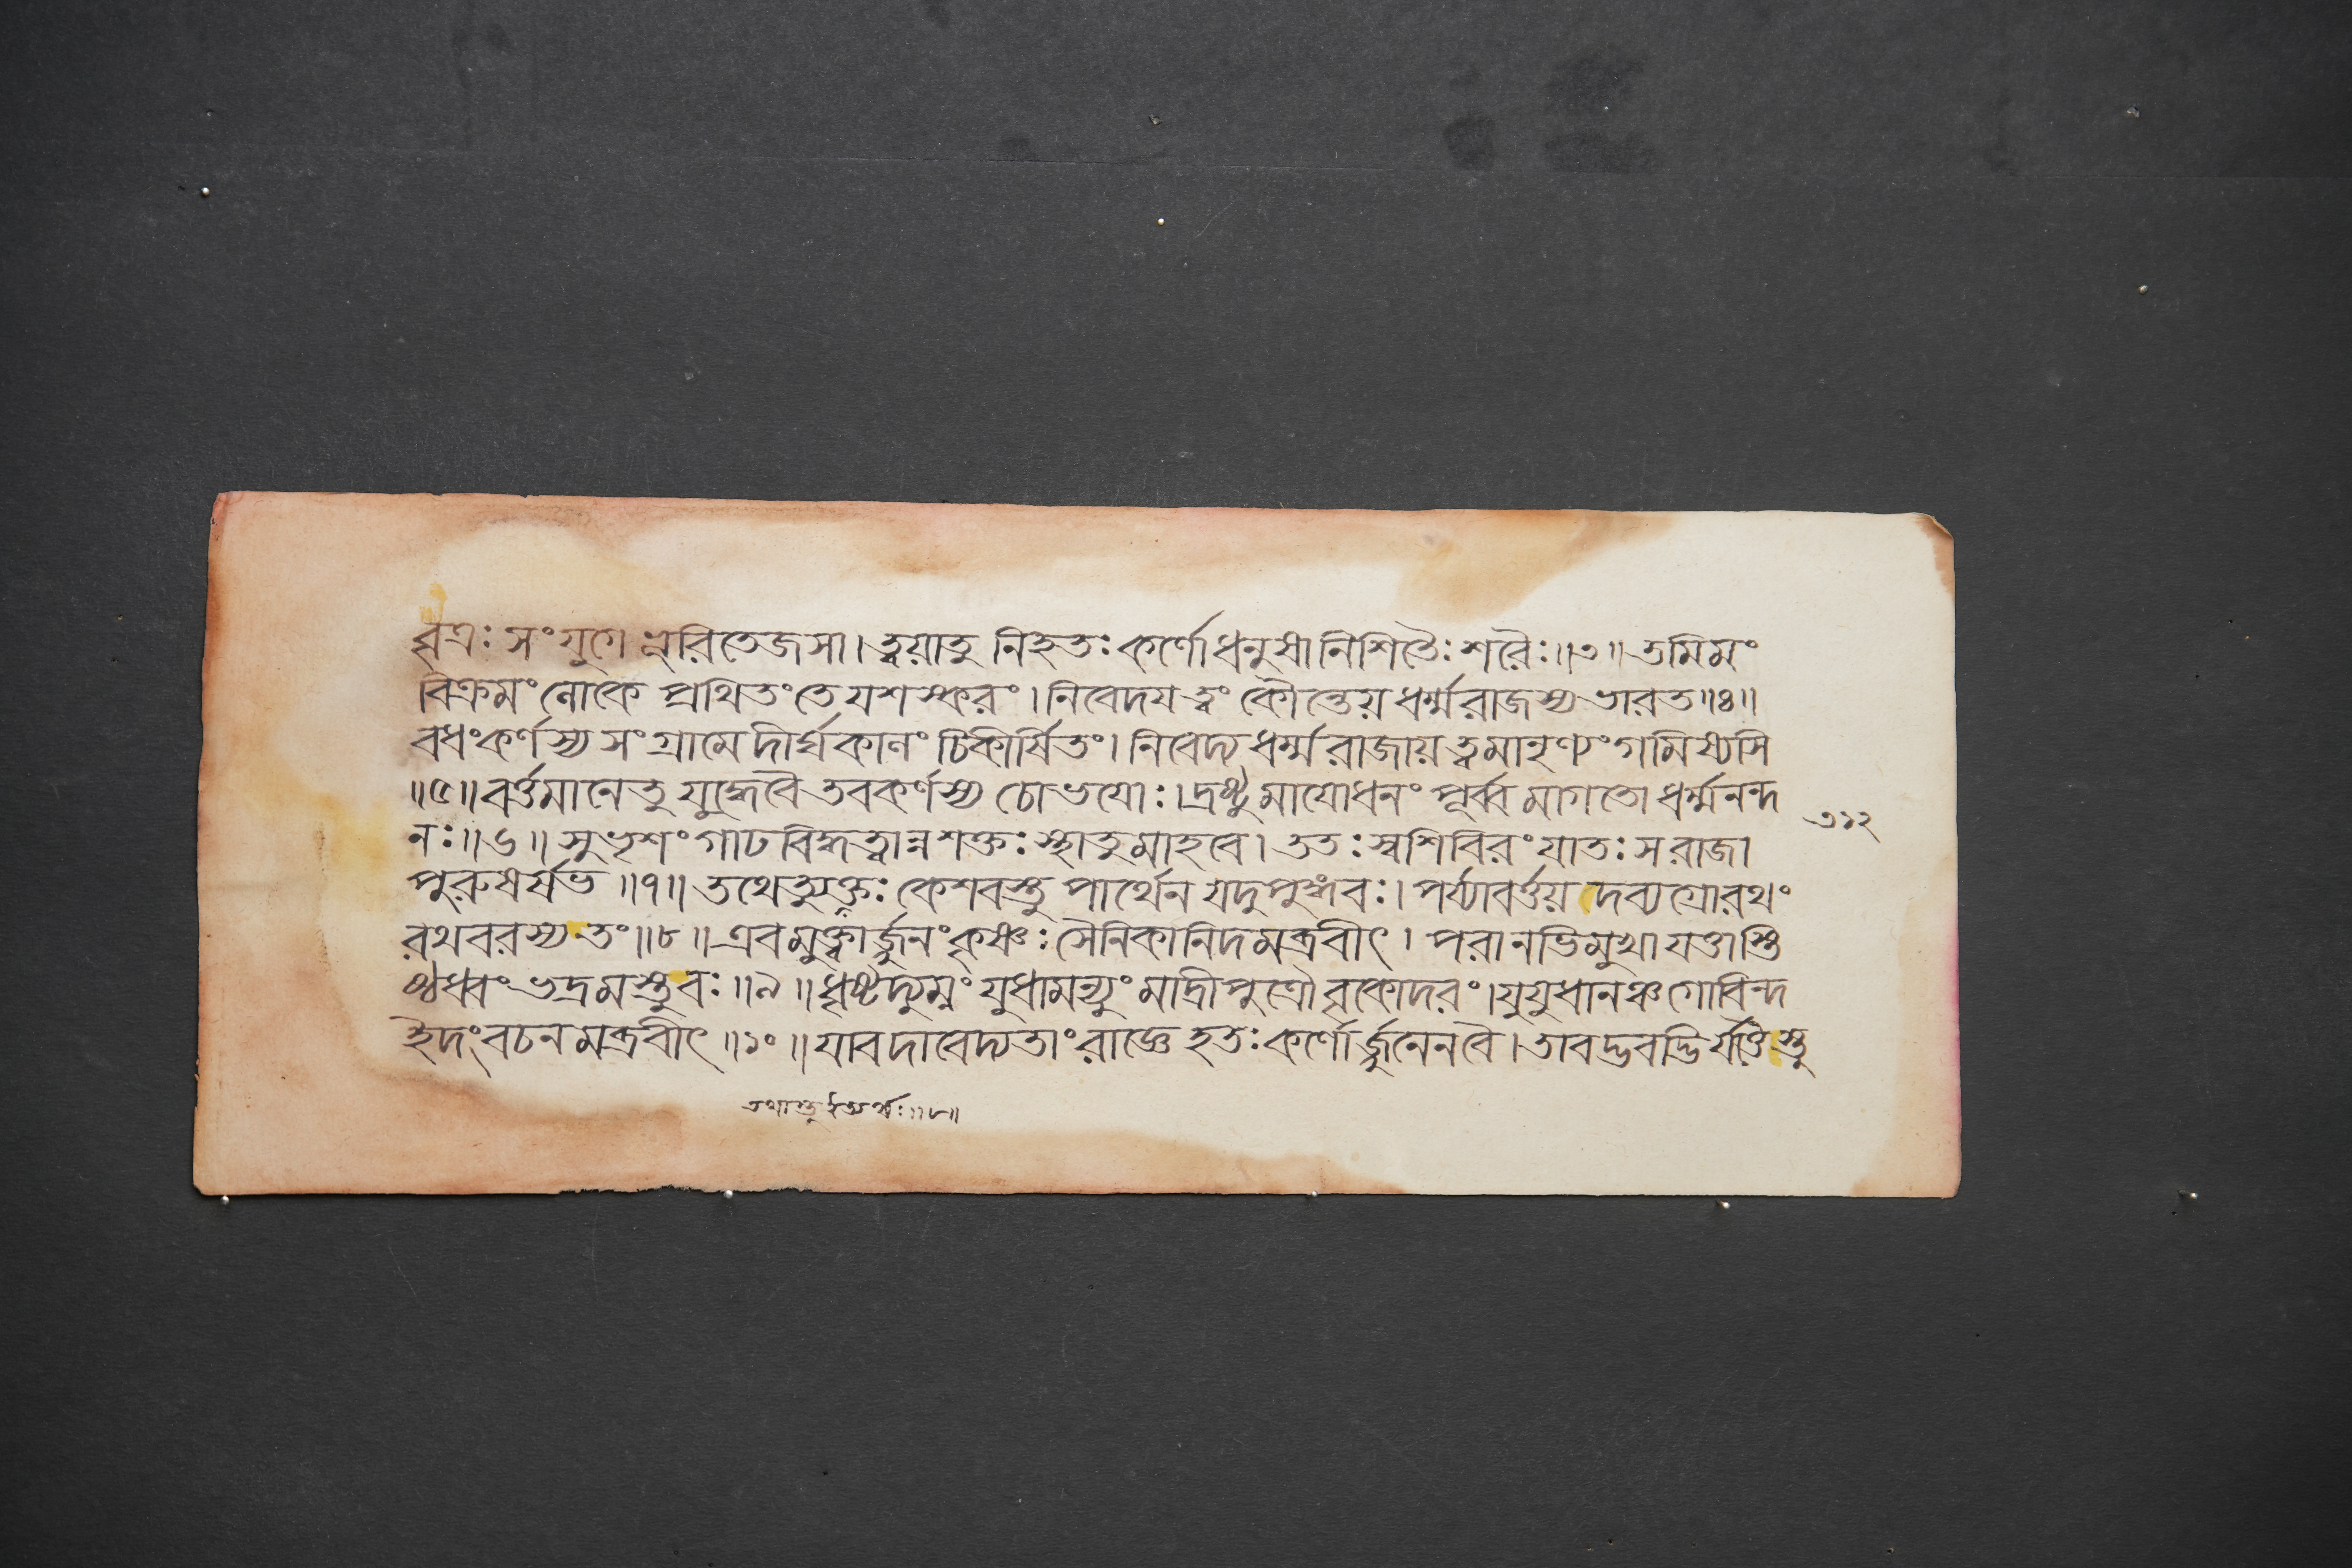 বৃত্রঃ সংযুগে ভূরিতেজসা। ত্বয়াতু নিহতঃ কর্ণোধনুষানিশিতৈঃ শরৈঃ॥৩॥ তমিমং
বিক্রমং লোকে প্রথিতংতে যশস্করং। নিবেদয ত্বং কৌন্তেয় ধর্ম্মরাজস্য ভারত॥৪॥
বধংকর্ণস্য সংগ্রামে দীর্ঘকালং চিকীর্ষিতং। নিবেদ্য ধর্ম্মরাজায় ত্বমানৃণ্যং গমিষ্যসি
॥৫॥ বর্ত্তমানেতু যুদ্ধেবৈ তবকর্ণস্য চোভযোঃ। দ্রষ্টুমাযোধনং পূর্ব্বমাগতো ধর্ম্মনন্দ
নঃ॥৬॥ সুভৃশং গাঢবিদ্ধত্বান্নশক্তঃ স্থাতুমাহবে। ততঃ স্বশিবিরং যাতঃ স রাজা
পুরুষর্ষভ॥৭॥ তথেত্যুক্তঃ কেশবস্তু পার্থেন যদুপুঙ্গবঃ। পর্য্যাবর্ত্তয় দব্যগ্রোরথং
রথবরস্য তং॥৮॥ এবমুক্ত্বার্জ্জুনং কৃষ্ণঃ সৈনিকানিদমব্রবীৎ। পরানভিমুখা যত্তাস্তি
ষ্ঠধ্বং ভদ্রমস্তুবঃ॥৯॥ ধৃষ্টদ্যুম্নং যুধামন্যুং মাদ্রীপুত্রৌ বৃকোদরং। যুযুধানঞ্চ গোবিন্দ
ইদং বচনমব্রবীৎ॥১০॥ যাবদাবেদ্যতাং রাজ্ঞে হতঃ কর্ণোর্জ্জুনেনবৈ। তাবদ্ভবদ্ভির্যত্তৈস্তু
৩১২
তথাস্তু ইত্যর্থঃ॥৮॥